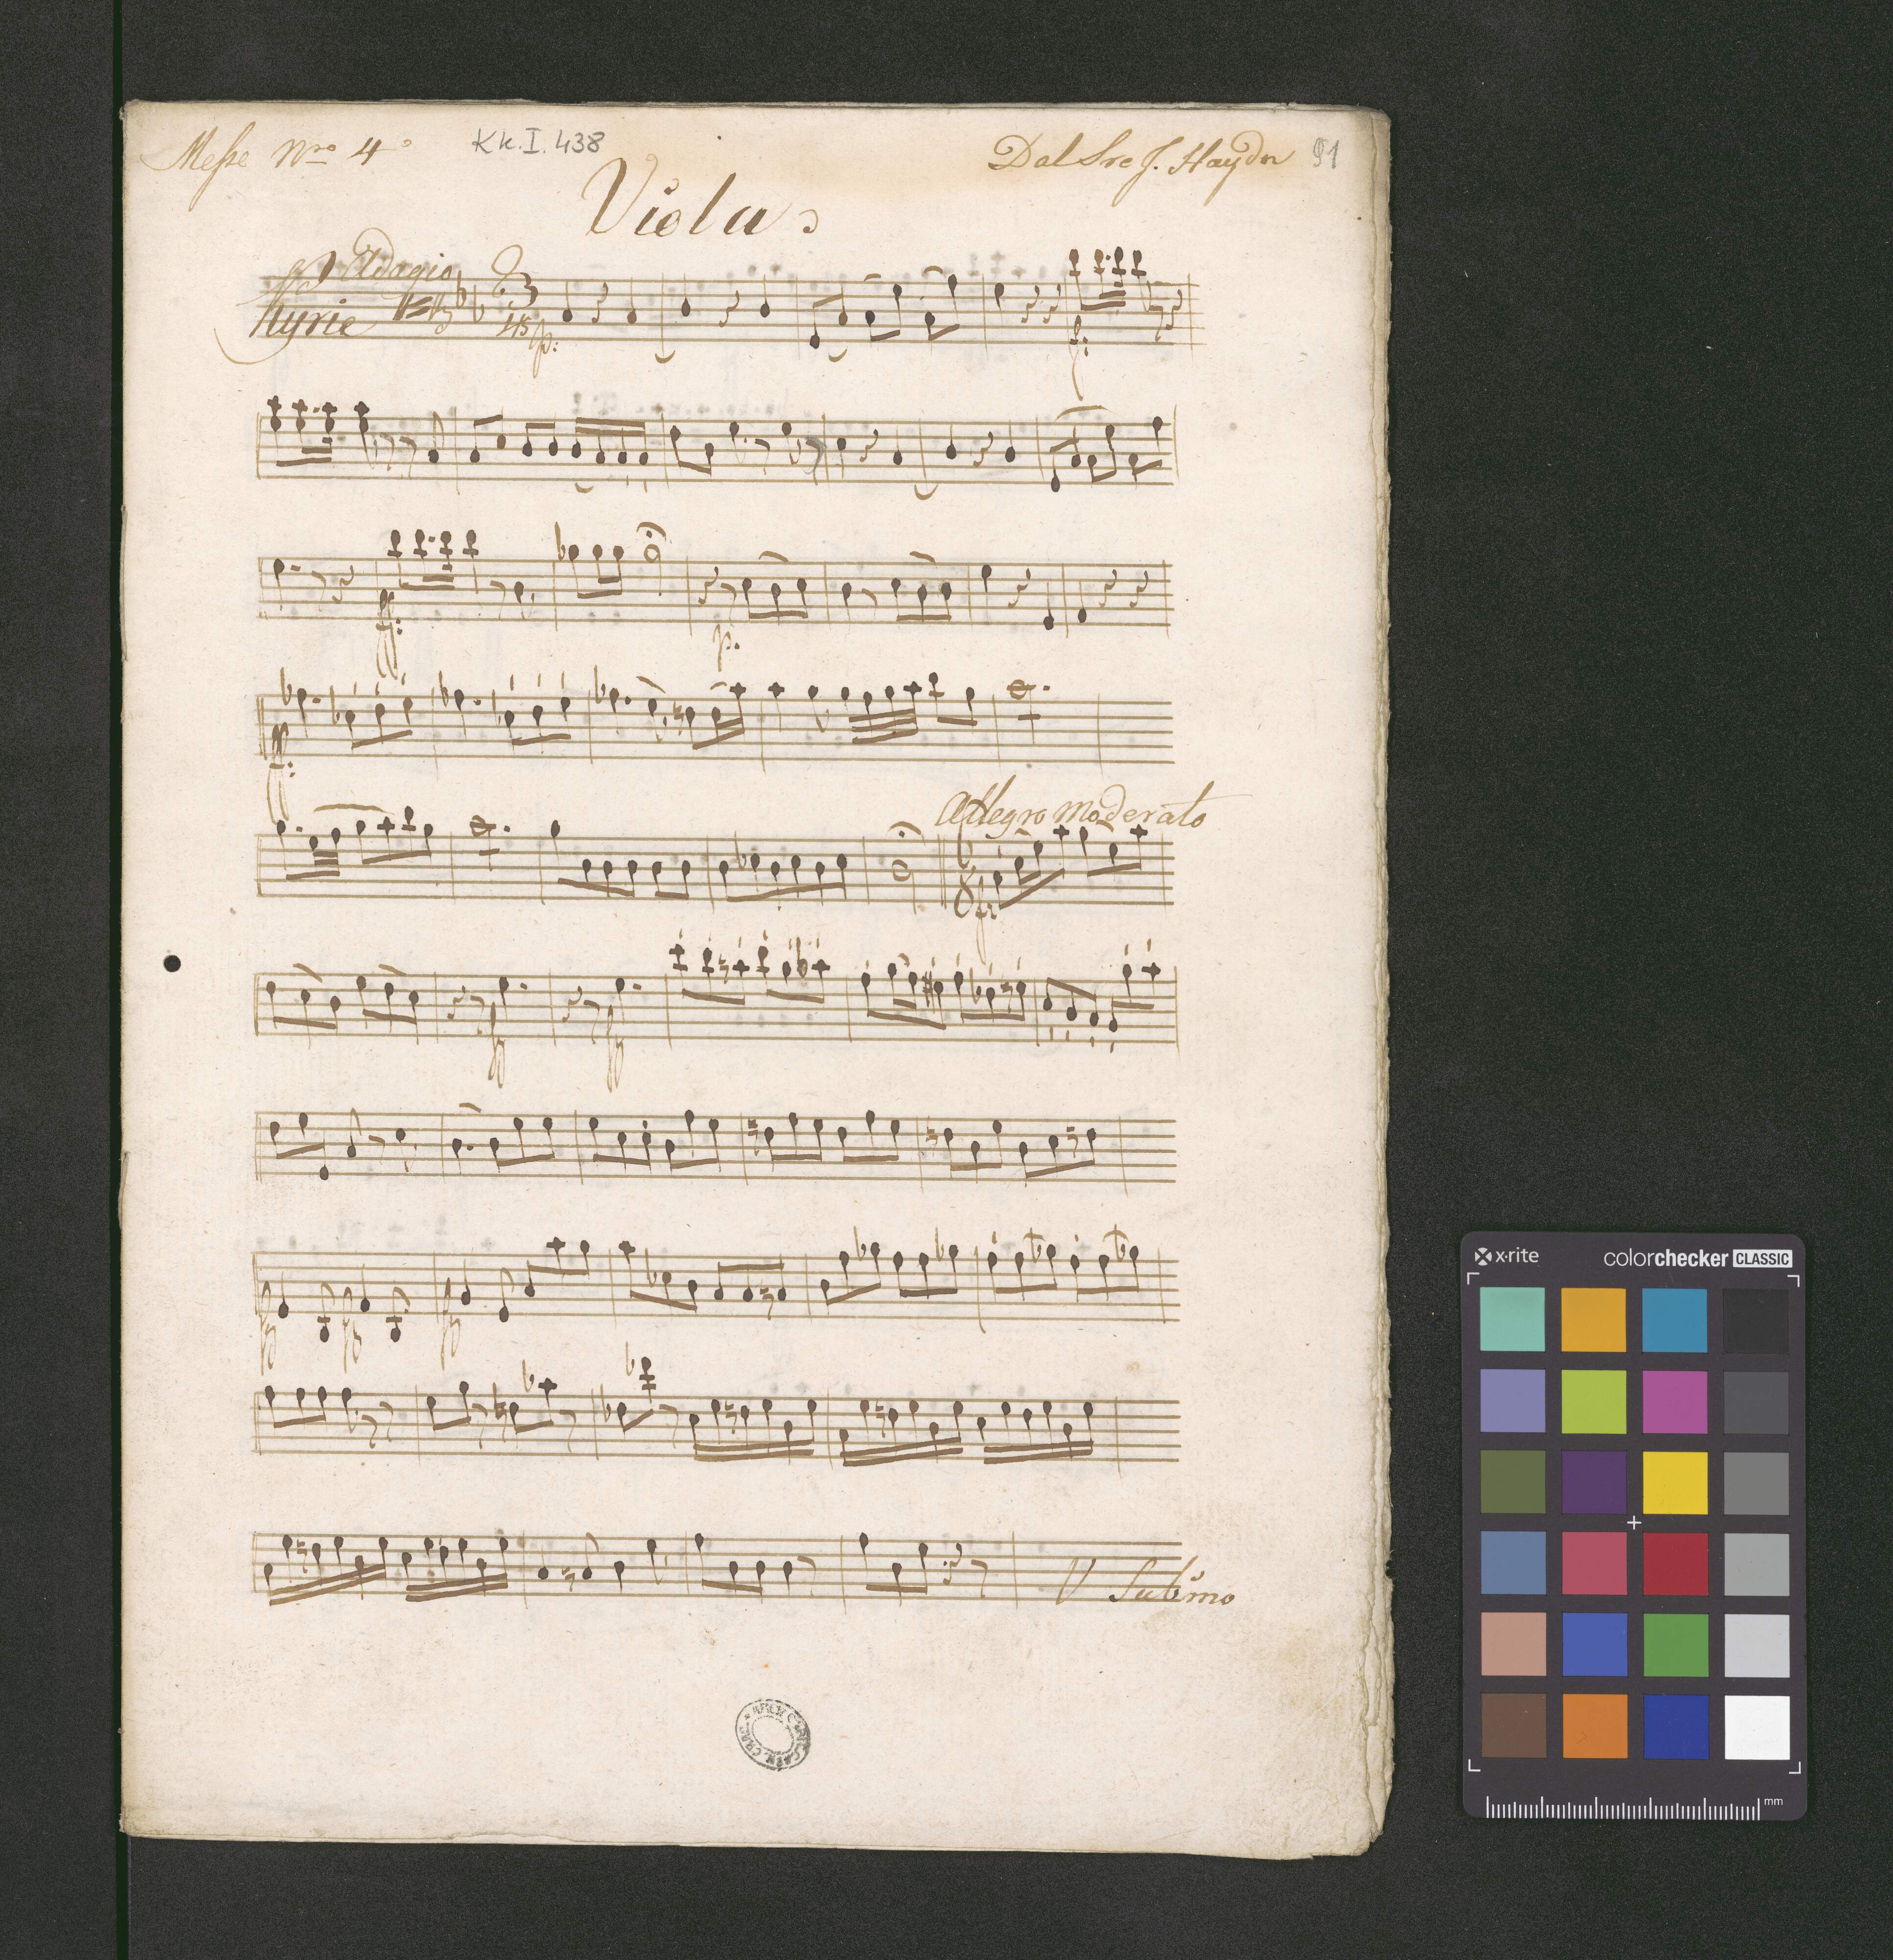 Messe Nro 4°
Kk. I. 438
Dal Sre J. Haydn
91
Viola
Adagio
Kyrie
3
4
p:
f:
ff:
p.
ff:
Allegro Moderato
6
8
V Subito
x·rite
colorchecker CLASSIC
mm